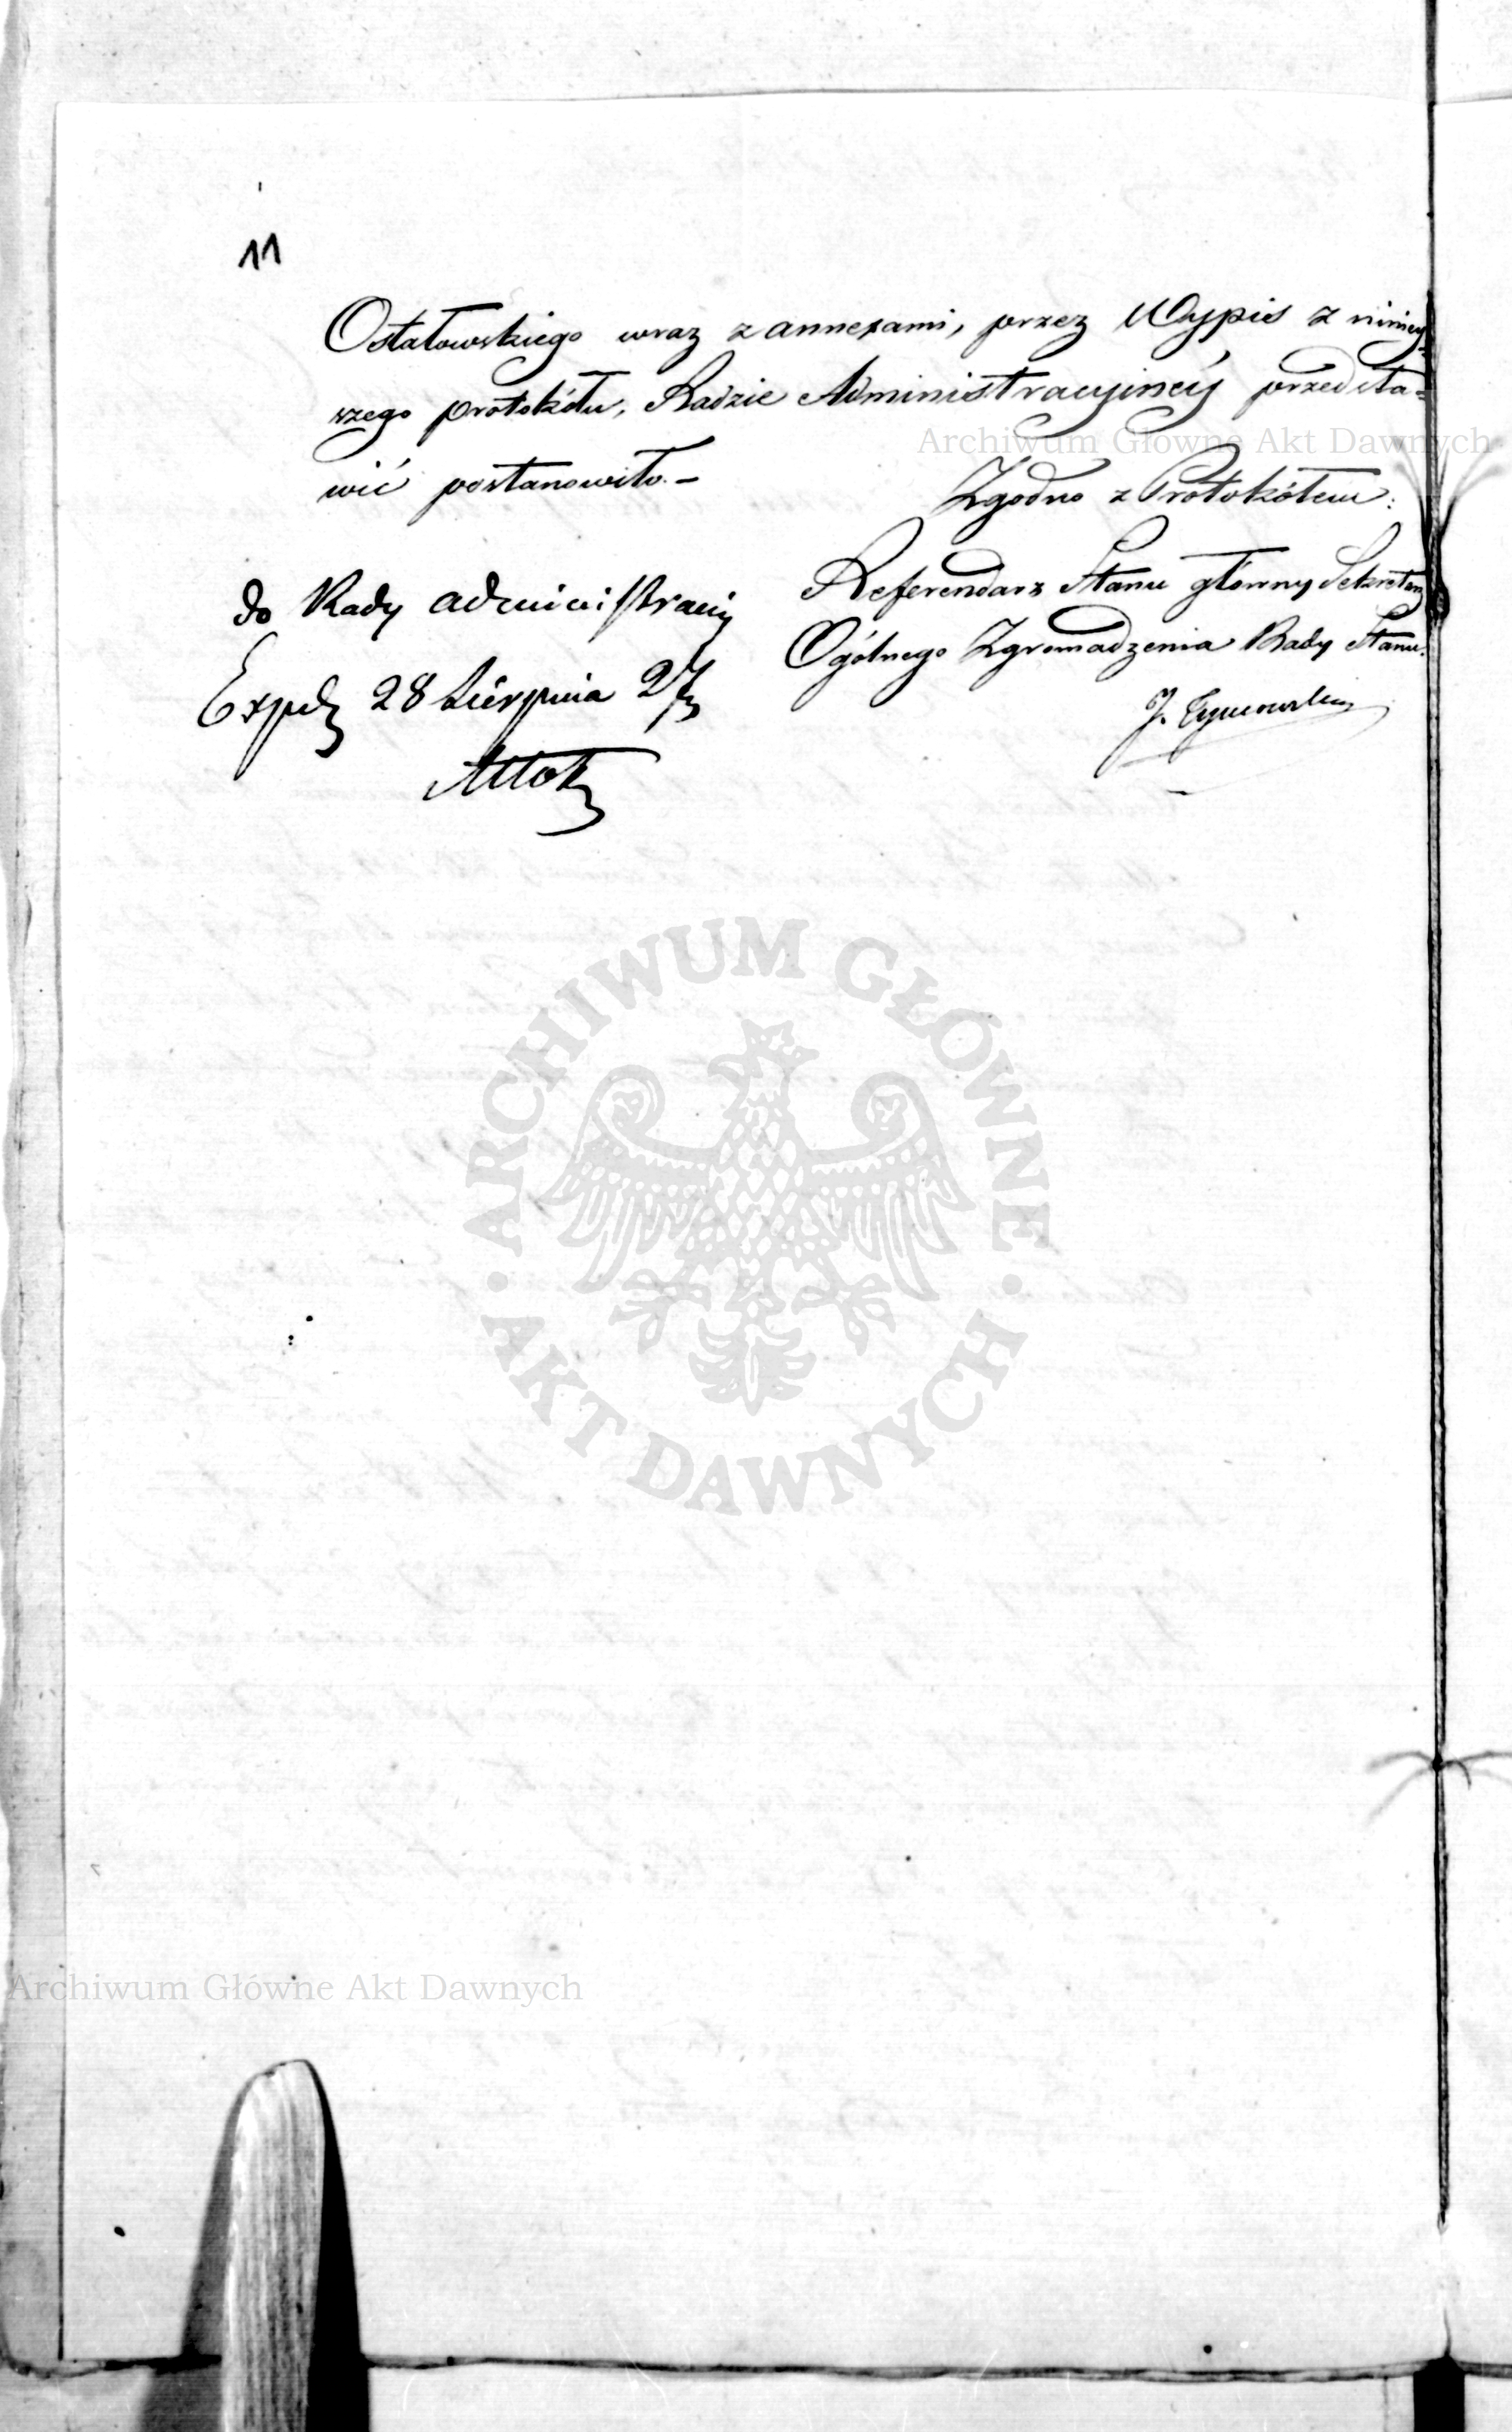 11
Ostatowskiego wraz z annexami, przez Wypis z niniey-
szego protokółu, Radzie Administracyinéy przedsta-
wić postanowiło. –
Zgodno z Protokółem:
Referendarz Stanu główny Sekretarz
Ogólnego Zgromadzenia Rady Stanu.
J. Tymowski
do Rady administracyi
Exped 28 Sierpnia 27
Archiwum Główne Akt Dawnych
ARCHIWUM GŁÓWNE
AKT DAWNYCH
Archiwum Główne Akt Dawnych